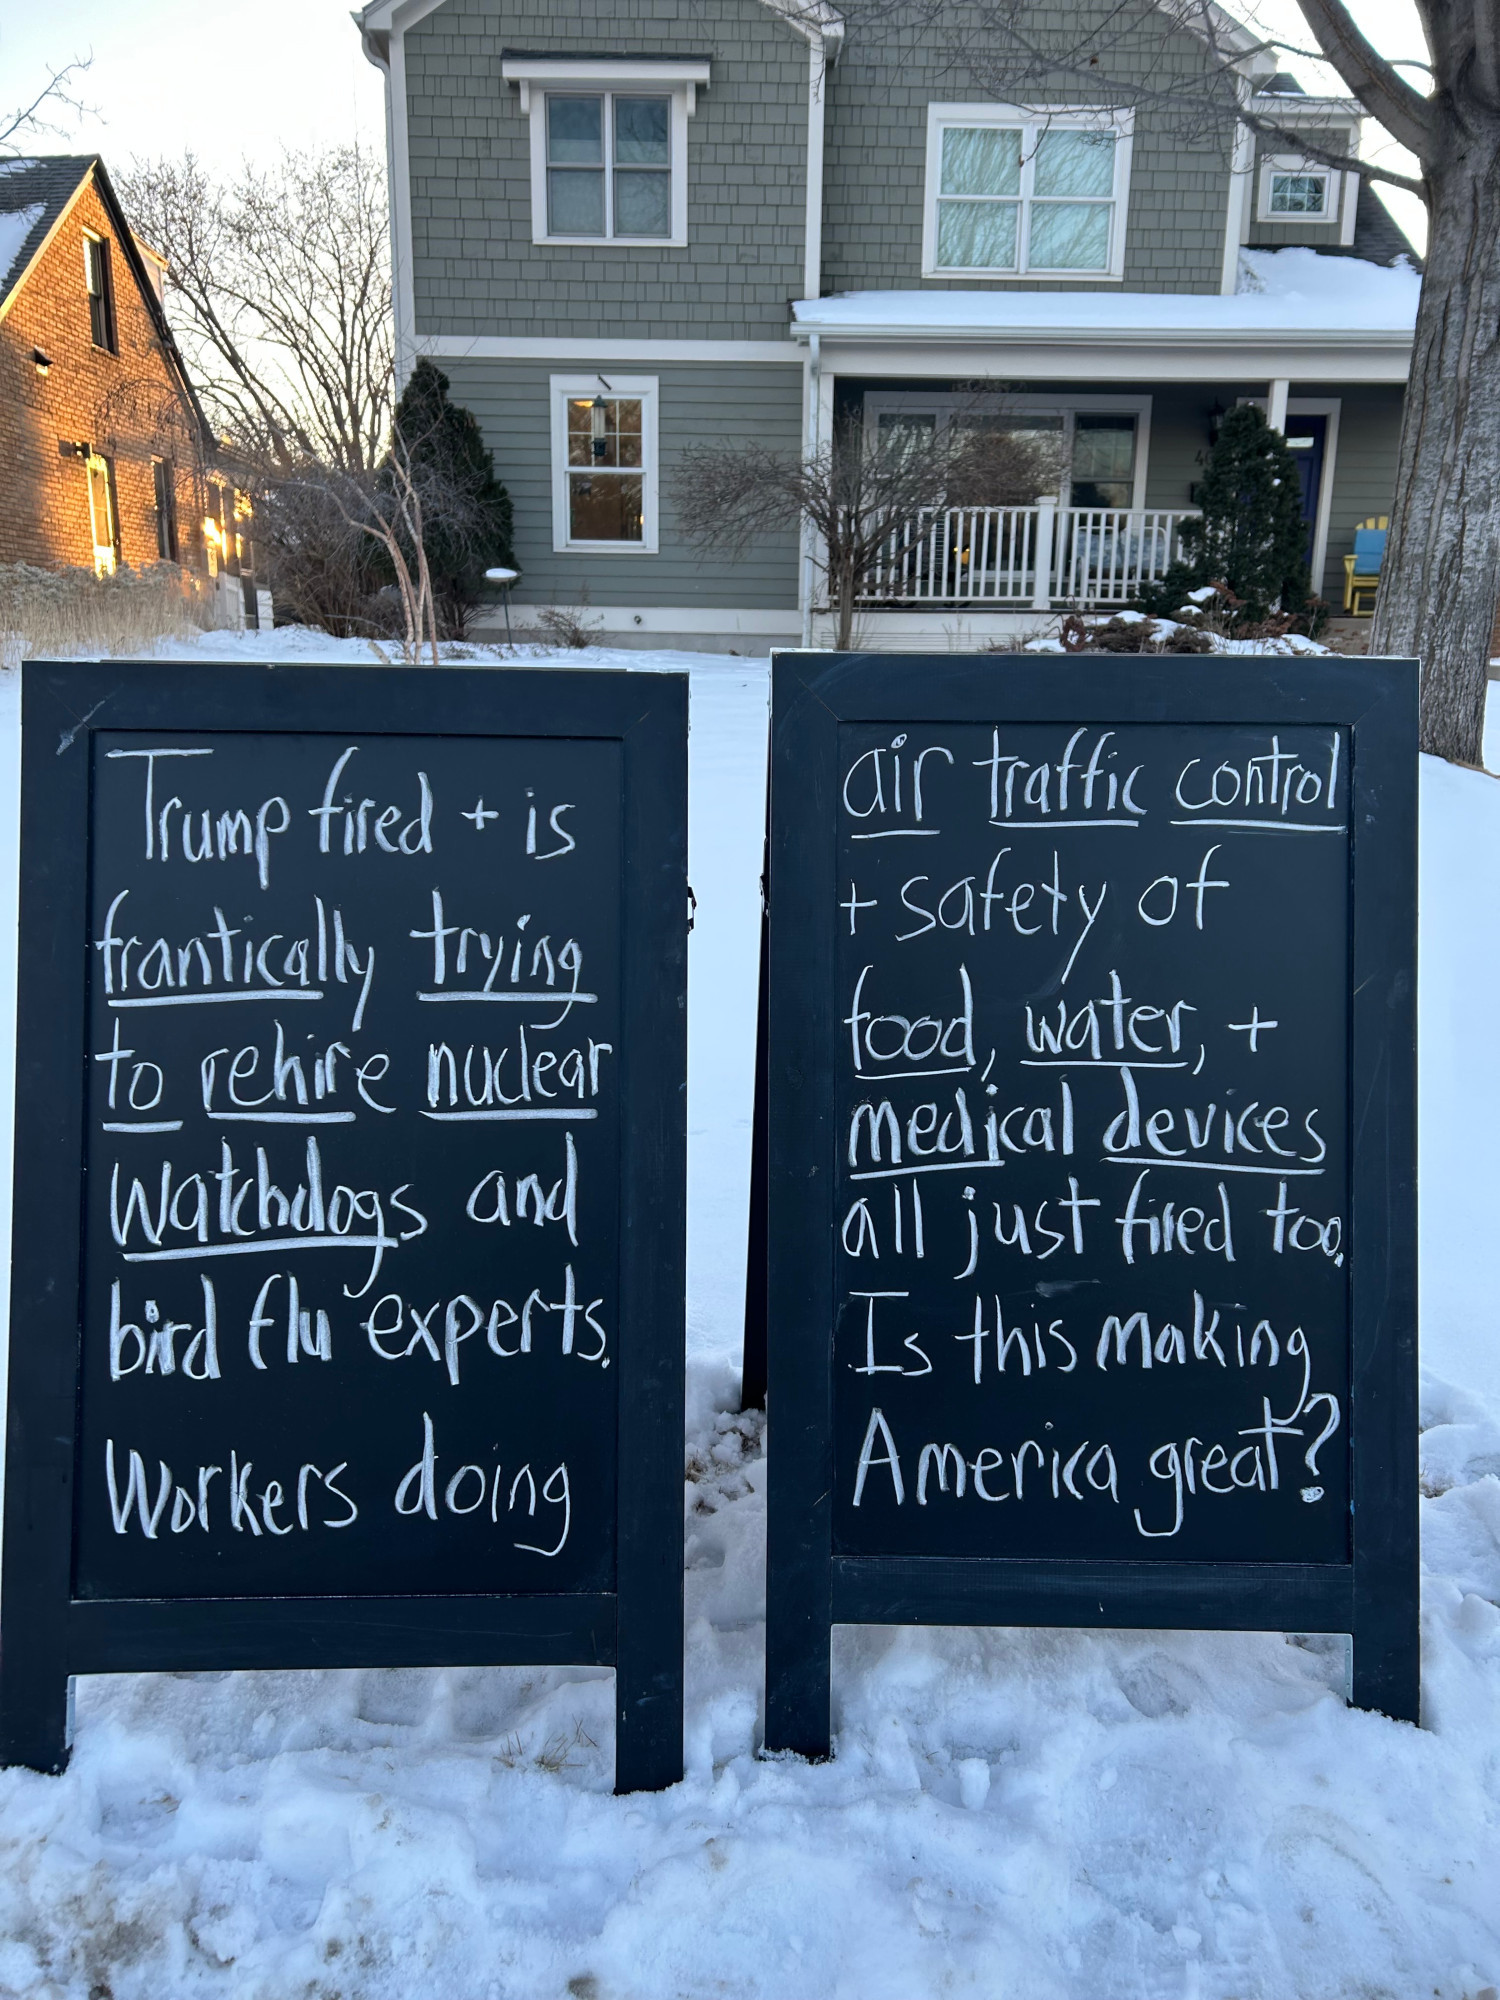 Trump fired + is
frantically trying
to rehire nuclear
watchdogs and
bird flu experts.
Workers doing
air traffic control
+ safety of
food, water, +
medical devices
all just fired too.
Is this making
America great?